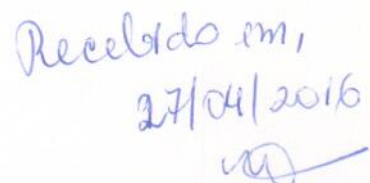 Recebido em,
27/04/2016